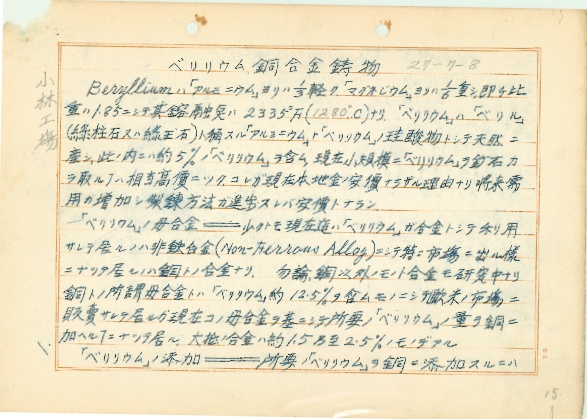 ベリリウム銅合金鋳物 27-7-8
小林工場
Berylliumハ「アルミニウム」ヨリハ1/3軽ク「マグネシウム」ヨリハ1/6重シ即チ比
重ハ1.85ニシテ其鎔融点ハ2335°F(1280°C)ナリ、「ベリリウム」ハ「ベリル」
(緑柱石又ハ緑玉石)ト稱スル「アルミニウム」ト「ベリリウム」ノ珪酸物トシテ天然ニ
産シ、此ノ内ニハ約5%ノ「ベリリウム」ヲ含ム、現在小規模ニ「ベリリウム」ヲ鉱石カ
ラ取ルヿハ相當高價ニツク、コレガ現在本地金ノ安價ナラザル理由ナリ将来需
用カ増加シ製錬方法カ進歩スレバ安價トナラン
「ベリリウム」ノ母合金═══少クトモ現在迄ハ「ベリリウム」ガ合金トシテ利用
サレテ居ルノハ非鉄合金(Non-Ferrous Alloy)ニシテ特ニ市場ニ出ル様
ニナツテ居ルノハ銅トノ合金ナリ、勿論銅以外ノモノト合金モ研究中ナリ
銅トノ所謂母合金トハ「ベリリウム」約12.5%ヲ含ムモノニシテ歐米ノ市場ニ
販賣サレテ居ルガ現在コノ母合金ヲ基ニシテ所要ノ「ベリリウム」ノ量ヲ銅ニ
加ヘルヿニナツテ居ル、大抵ノ合金ハ約1.5乃至2.5%ノモノデアル
「ベリリウム」ノ添加═══所要ノ「ベリリウム」ヲ銅ニ添加スルニハ
15.